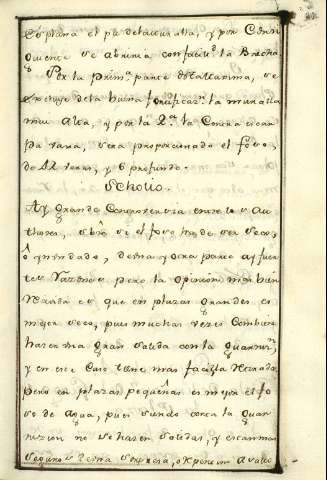 esplana el pie de la muralla, y por Conse
quencia se abriria con facilid. la Brecha
Por la prim.ª parte de la Maxima, se
excluye de la buena fortificac.n la muralla
mui Alta, y por la 2.ª la
para sera proporcionado el foso,
de 12 y 6 profundo.
Scholio.
Ay grande Concurrencia entre los Au
thores, sobre se el foso ha de ser seco,
ô ynundado, de una y otra parte ay fuer
tes razones pero la opinion mas bien
es que en plazas grandes es
mejor seco, pues muchas veces Combiene
hacer una gran salida con la guarnic.n
y en este caso tiene mas facil la retirada
pero en plazas pequeñas es mejor el fo
so de Agua, pues siendo corta la guar
nicion no se hacen salidas, y estan mas
seguros de una Sorpresa, o